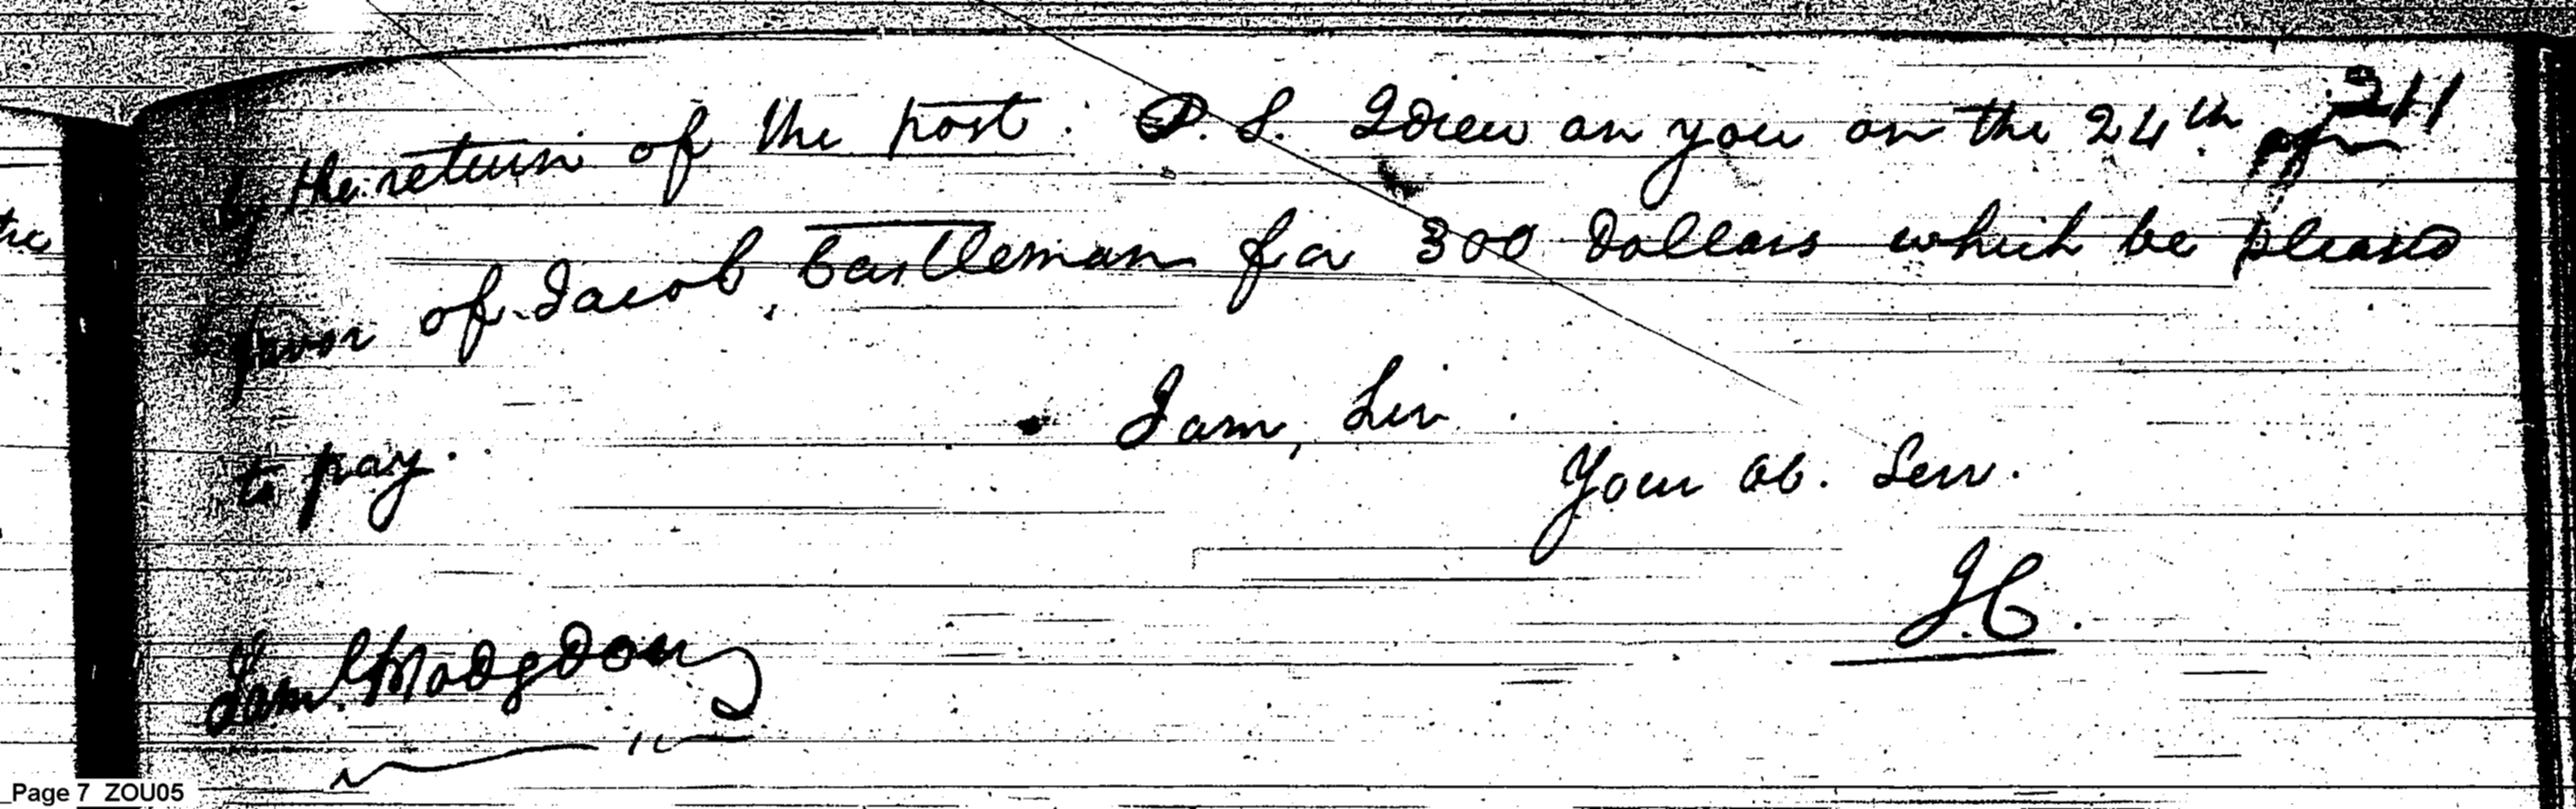 211
by the return of the post. P. S. I drew on you on the 24th
favor of Jacob Castleman for 300 Dollars which be pleased
to pay.
I am, Sir.
Your Ob. Serv.
J.C.
Saml. Hodgdon
Page 7 ZOU05